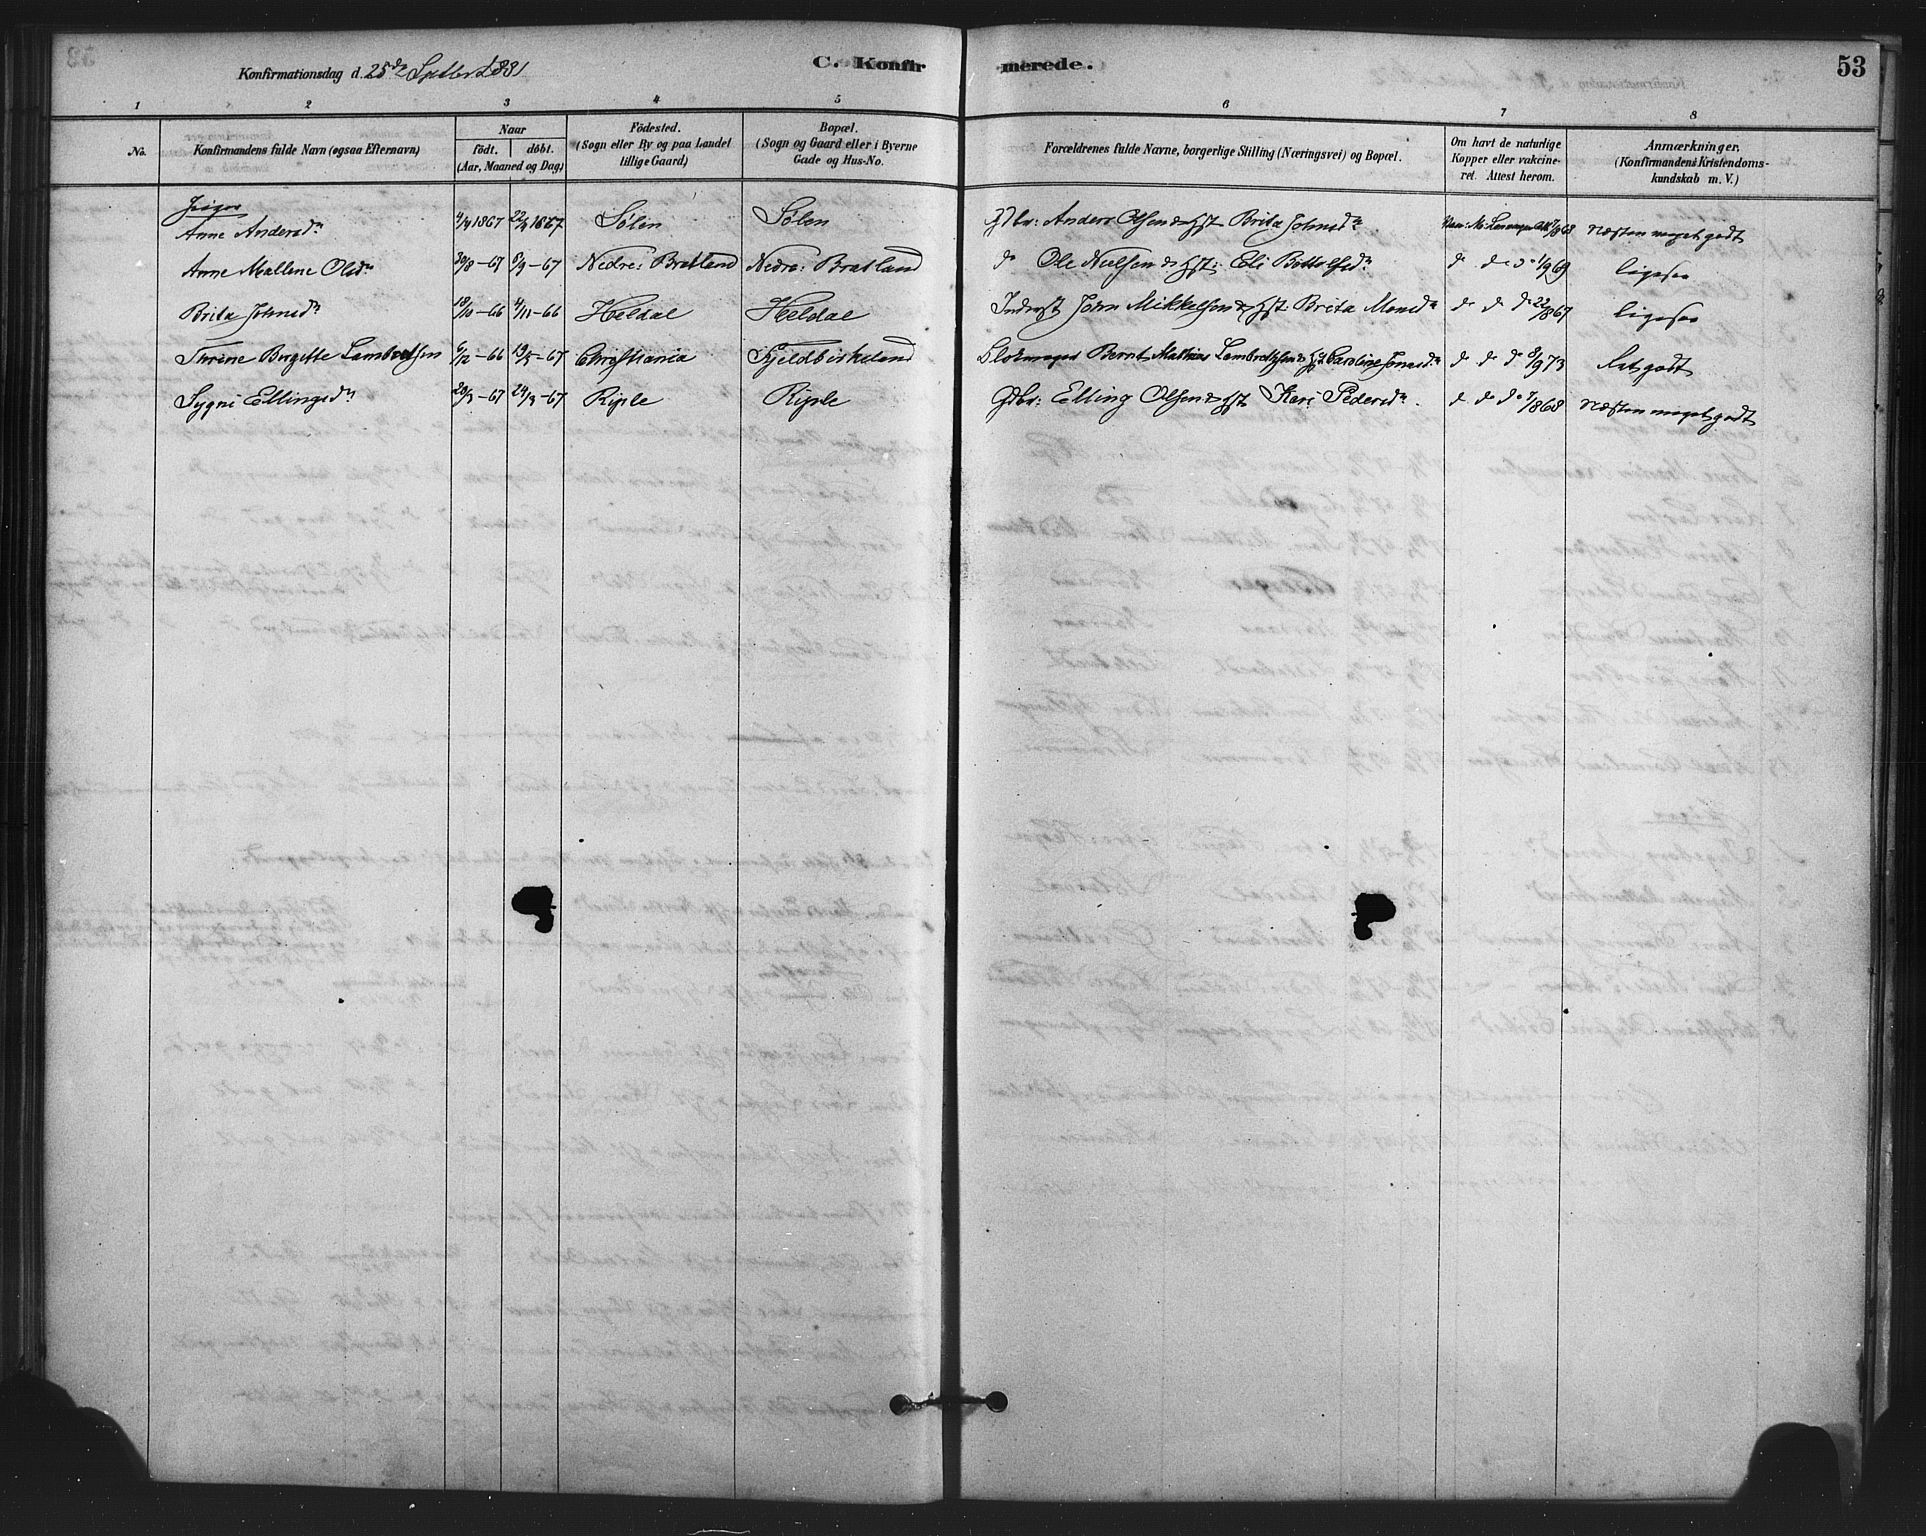 Konfirmationsdag d. 25de Septbr 1881
C. Konfirmerede.
53
1 2 3 4 5 6 7 8
No.
Konfirmandens fulde Navn (ogsaa Efternavn)
Naar
födt. döbt.
(Aar, Maaned og Dag)
Födested.
(Sogn eller By og paa Landet
tillige Gaard)
Bopæl.
(Sogn og Gaard eller i Byerne
Gade og Hus-No.
Forældrenes fulde Navne, borgerlige Stilling (Næringsvei) og Bopæl.
Om havt de naturlige
Kopper eller vakcine-
ret. Attest herom.
Anmærkninger.
(Konfirmandens Kristendoms-
kundskab m. V.)
Piger
Anne Andersdr 4/4 1867 22/4 1867 Sølen Sølen Gbr: Anders Olsen & Hst Brita Johnsdr Næsten meget godt
Anne Mallene Olsdr 30/8-67 8/9-67 Nedre: Bratland Nedre: Bratland do Ole Neelsen & Hst: Eli Bottolfsdr do do do 1/9 69 ligesaa
Brita Johnsdr 18/10-66 4/11-66 Heldal Heldal Inderst John Mikkelsen & Hst Brita Monsdr do do do 22/8 67 ligesaa
Thrine Birgitte Lambretsen 6/12-66 19/5-67 Christiania Fjeldbirkeland Blokmager Bernt Mathias Lambretsen & Hst Caroline Jonsdr do do do 8/9 73 Ret godt
Sygni Ellingsdr 20/3-67 24/3-67 Riple Riple Gbr: Elling Olsen & Hst Kari Pedersdr do do do 7/8 68 Næsten meget godt